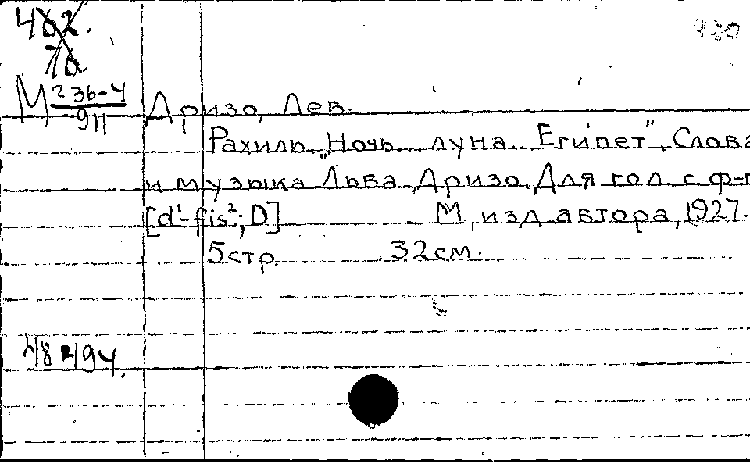 402.
70
М 236-4
911
Дризо, Лев.
Рахиль „Ночь луна Египет". Слова
и музыка Льва Дризо. Для гол. с ф-п
[d¹-fis²; D] М., изд. автора, 1927.
5 стр. 32 см.